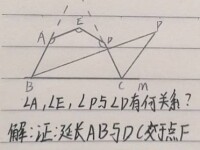 E
A
D
P
B
C
M
∠A,∠E,∠P与∠D有何关系?
解:证:延长AB与DC交于点F